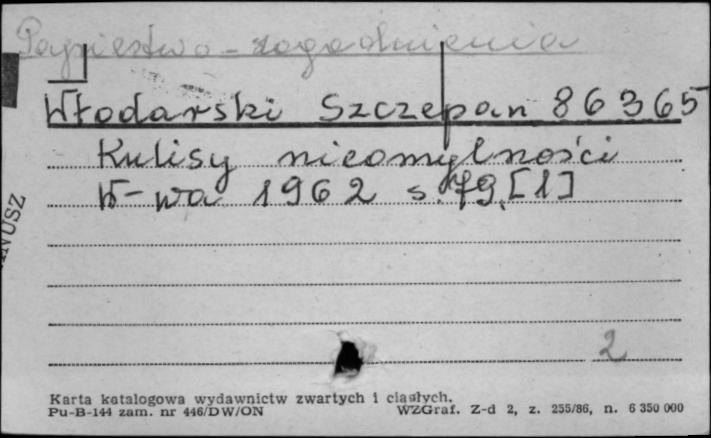 Papiestwo - zagadnienia
Włodarski Szczepan 86365
Kulisy nieomylności
W-wa 1962 s. 79, [1]
2
Karta katalogowa wydawnictw zwartych i ciągłych.
Pu-B-144 zam. nr 446/DW/ON WZGraf. Z-d 2, z. 255/86, n. 6 350 000